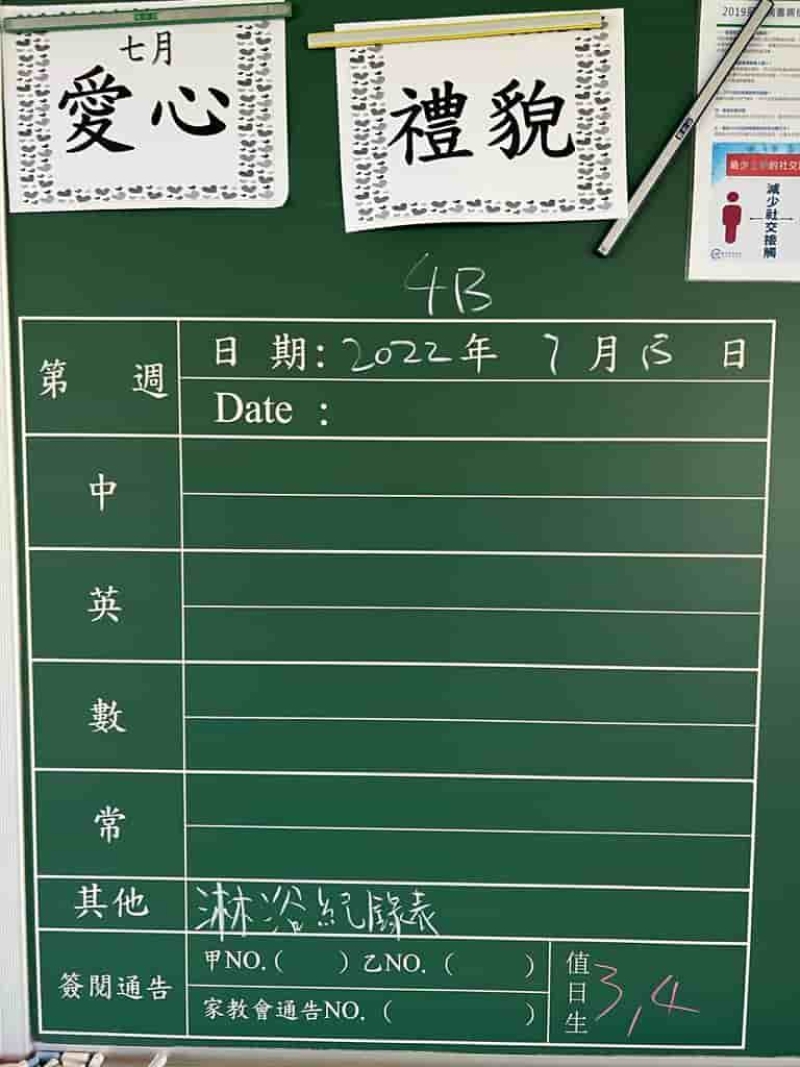 七月
愛心
禮貌
減少社交接觸
4B
第 週
日 期: 2022年 7月 15 日
Date :
中
英
數
常
其他 淋浴紀錄表
簽閱通告
甲NO.( ) 乙NO. ( )
家教會通告NO. ( )
值日生 3,4